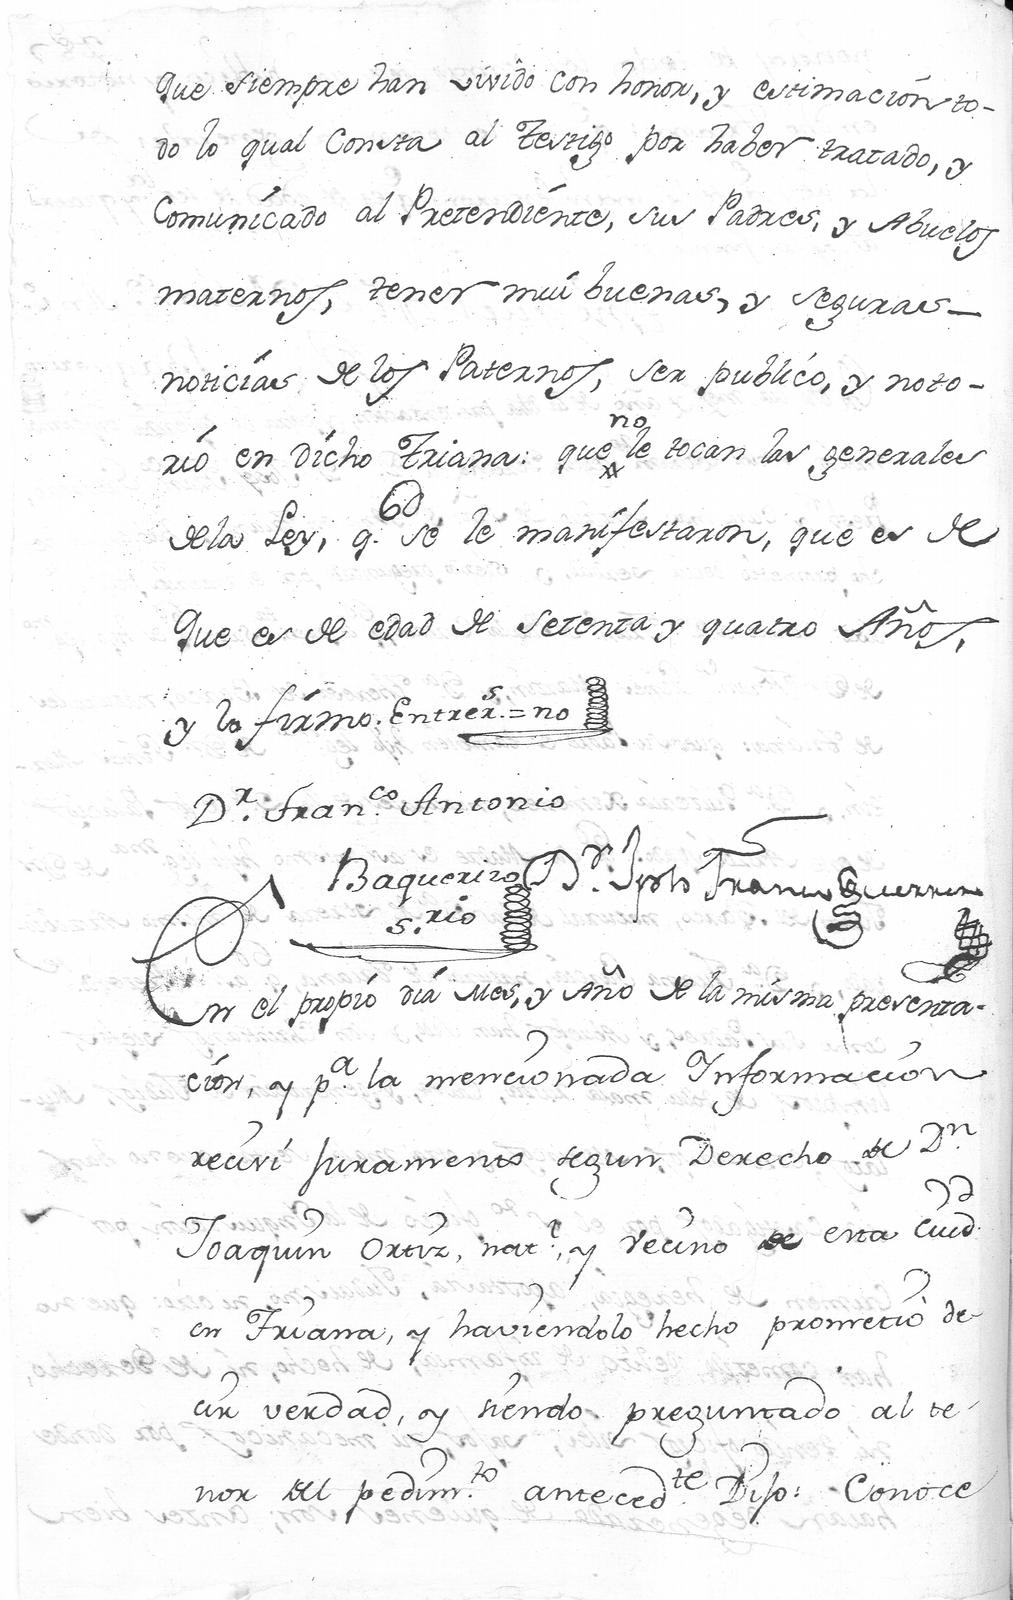 que siempre han vivido con honor, y estimación to-
do lo qual Consta al Testigo por haber tratado, y
Comunicado al Pretendiente, sus Padres, y Abuelos
maternos, tener mui buenas, y seguras
noticias de los Paternos, ser publico, y noto-
rio en dicho Triana: que no le tocan las generales
de la Ley, q. se le manifestaron, que es de
Que es de edad de setenta y quatro Años,
y lo firmo. Entrer.s = no
D.r Fran.co Antonio
Baquerizo
s.rio
D.r
En el propio dia Mes, y Año de la misma presenta-
ción, y p.a la mencionada Informacion
recivi juramento segun Derecho de D.n
Joaquin Ortiz, nat.l, y vecino de esta Ciud.d
en Triana, y haviendolo hecho prometió de-
cir verdad, y siendo preguntado al te-
nor del pedim.to anteced.te Dijo: Conoce